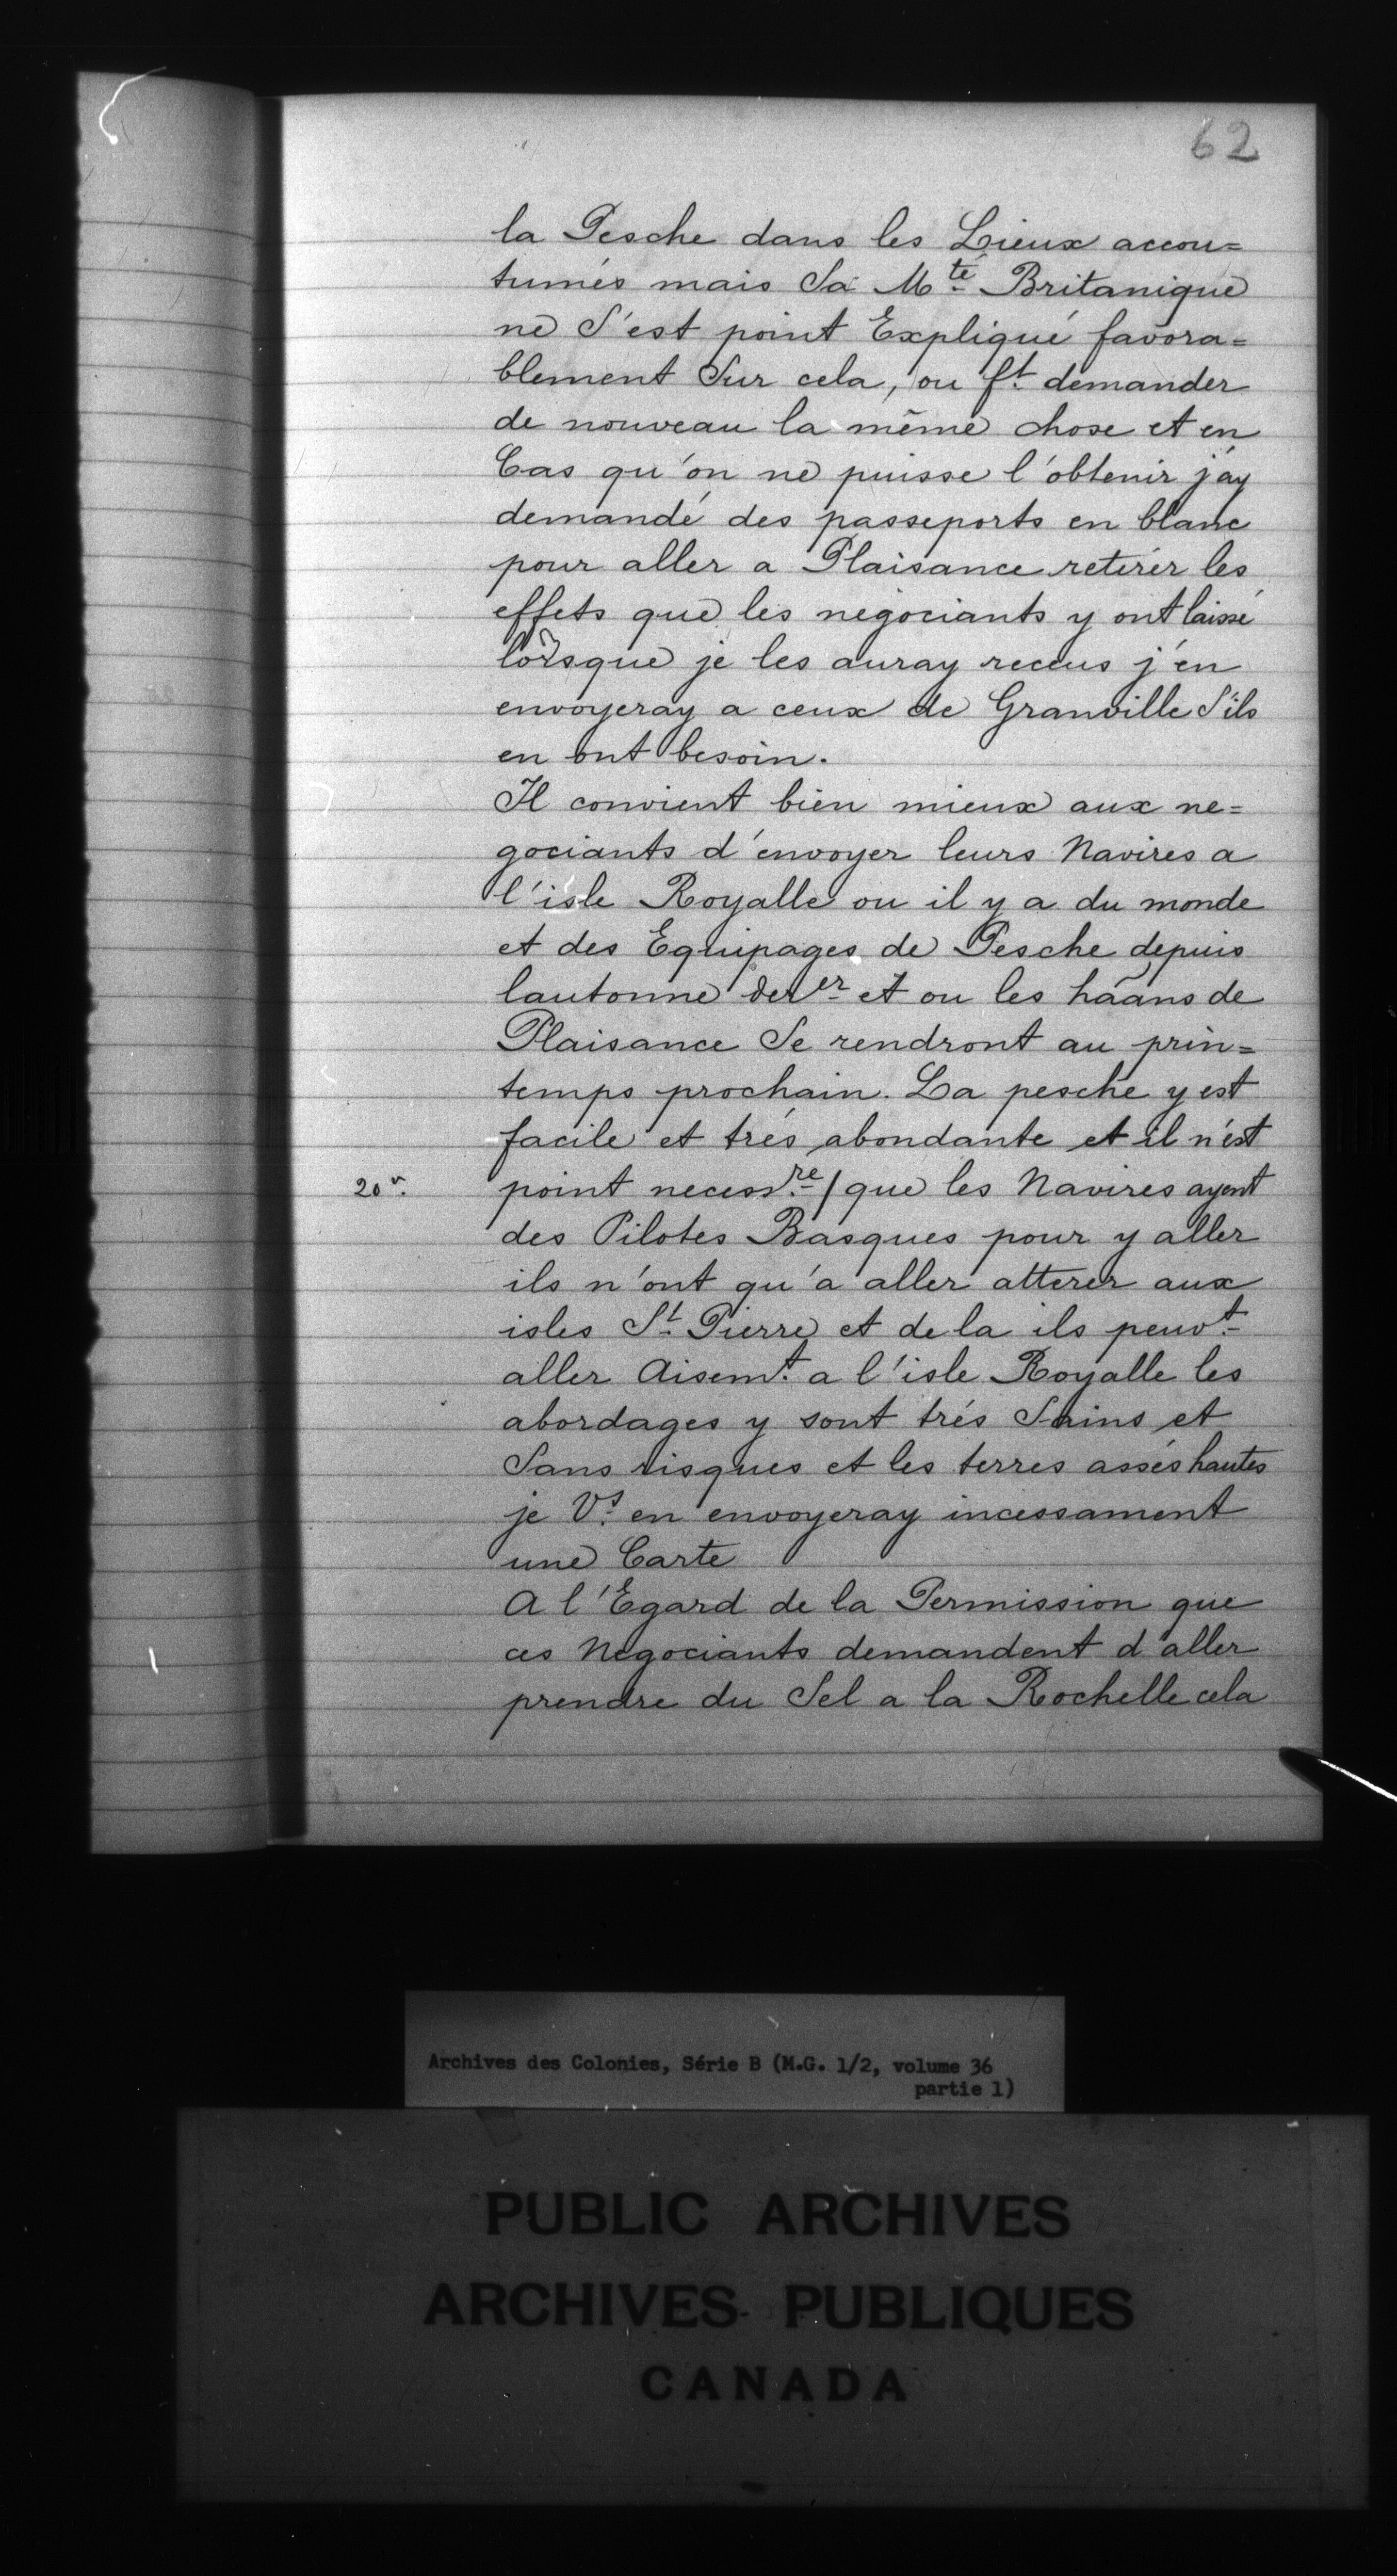 62
la Pesche dans les Lieux accou=
tumés mais Sa Mté Britanique
ne S'est point Expliqué favora=
blement Sur cela, ou ft demander
de nouveau la même chose et en
Cas qu'on ne puisse l'obtenir j'ay
demandé des passeports en blanc
pour aller a Plaisance retirer les
effets que les negociants y ont laissé
lorsque je les auray receus j'en
envoyeray a ceux de Granville S'ils
en ont besoin.
Il convient bien mieux aux ne=
gociants d'envoyer leurs Navires a
l'isle Royalle ou il y a du monde
et des Equipages de Pesche depuis
lautonne derer et ou les hãans de
Plaisance Se rendront au prin=
temps prochain. La pesche y est
facile et trés abondante et il n'est
20 v. point necessre / que les Navires ayent
des Pilotes Basques pour y aller
ils n'ont qu'a aller atterer aux
isles St Pierre et de la ils peuvt
aller Aisemt a l'isle Royalle les
abordages y sont trés Sains et
Sans risques et les terres assés hautes
je Vs en envoyeray incessament
une Carte
A l'Egard de la Permission que
ces Negociants demandent d'aller
prendre du Sel a la Rochelle cela
Archives des Colonies, Série B (M.G. 1/2, volume 36
partie 1)
PUBLIC ARCHIVES
ARCHIVES PUBLIQUES
CANADA